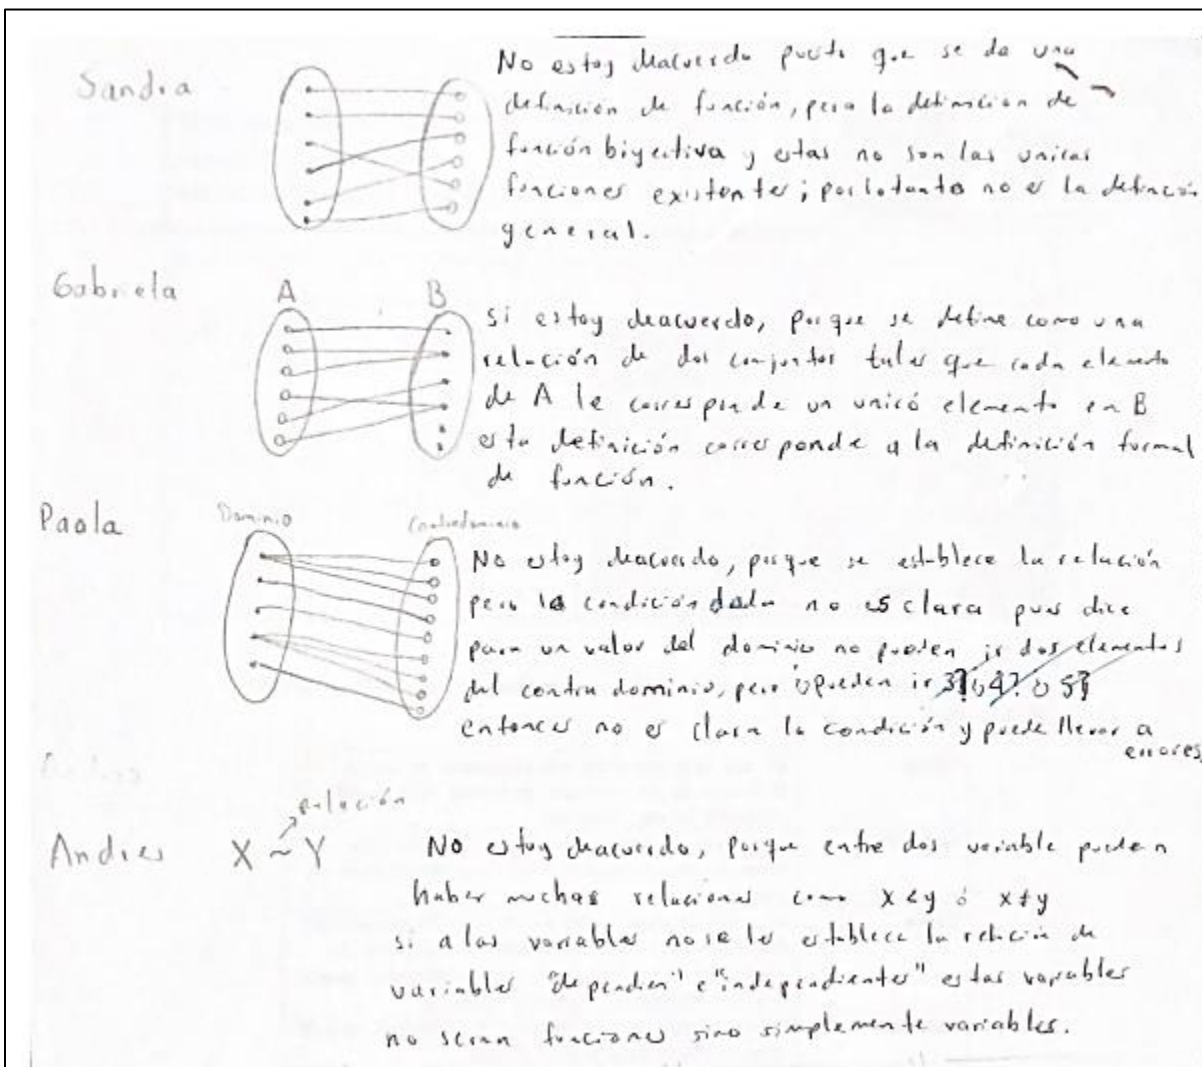 Sandra
No estoy deacuerdo puesto que se da una
definición de función, pero la definición de
función biyectiva y estas no son las unicas
funciones existentes; por lo tanto no es la definición
general.
Gabriela
A B
Si estoy deacuerdo, porque se define como una
relación de dos conjuntos tales que cada elemento
de A le corresponde un unicó elemento en B
esta definición corresponde a la definición formal
de función.
Paola
Dominio Contradominio
No estoy deacuerdo, porque se establece la relación
pero la condición dada no es clara pues dice
para un valor del dominio no pueden ir dos elementos
del contra dominio, pero ¿pueden ir 3? ó 4? ó 5?
entonces no es clara la condición y puede llevar a
errores
Andres
relación
X ~ Y
No estoy deacuerdo, porque entre dos variable pueden
haber muchas relaciones como x<y ó x+y
si a las variables no se les establece la relación de
variables "dependien" e "independientes" estas variables
no seran funciones sino simplemente variables.